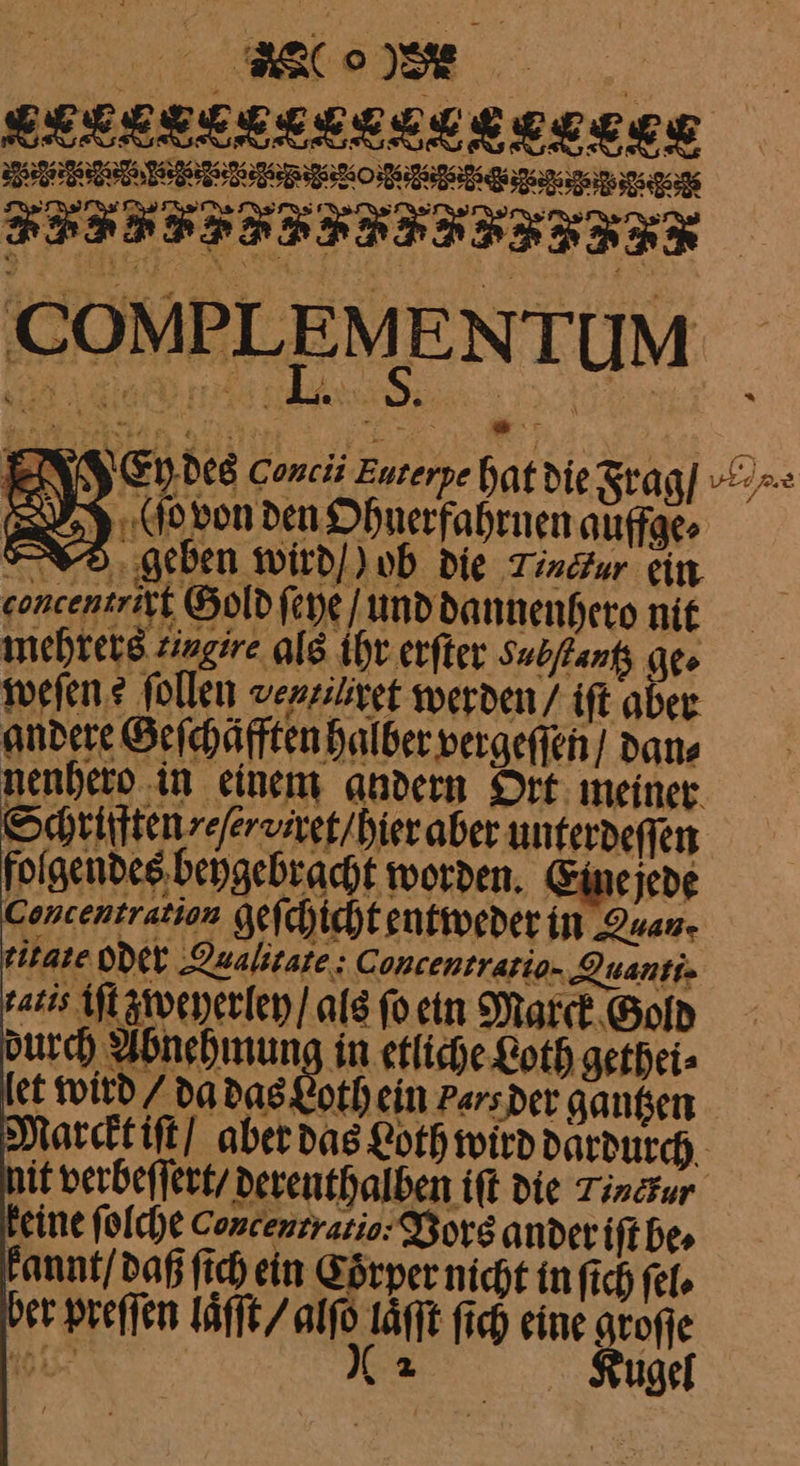 ( o )
COMPLEMENTUM
L. S.
BEy des Concii Euterpe hat die Frag/
(ſo von den Ohnerfahrnen auffge-
geben wird/) ob die Tinctur ein
concentrirt Gold ſeye / und dannenhero nit
mehrers tingire als ihr erſter Subſtantz ge-
weſen? ſollen ventiliret werden / iſt aber
andere Geſchäfften halber vergeſſen / dan-
nenhero in einem andern Ort meiner
Schrifften reſerviret / hier aber unterdeſſen
folgendes beygebracht worden. Eine jede
Concentration geſchicht entweder in Quan-
titate oder Qualitate: Concentratio- Quanti-
tatis iſt zweyerley / als ſo ein Marck Gold
durch Abnehmung in etliche Loth gethei-
let wird / da das Loth ein Pars der gantzen
Marckt iſt / aber das Loth wird dardurch
nit verbeſſert / derenthalben iſt die Tinctur
keine ſolche Concentratio: Vors ander iſt be-
kannt / daß ſich ein Cörper nicht in ſich ſel-
ber preſſen läſſt / alſo läſſt ſich eine groſſe
)( 2 Kugel